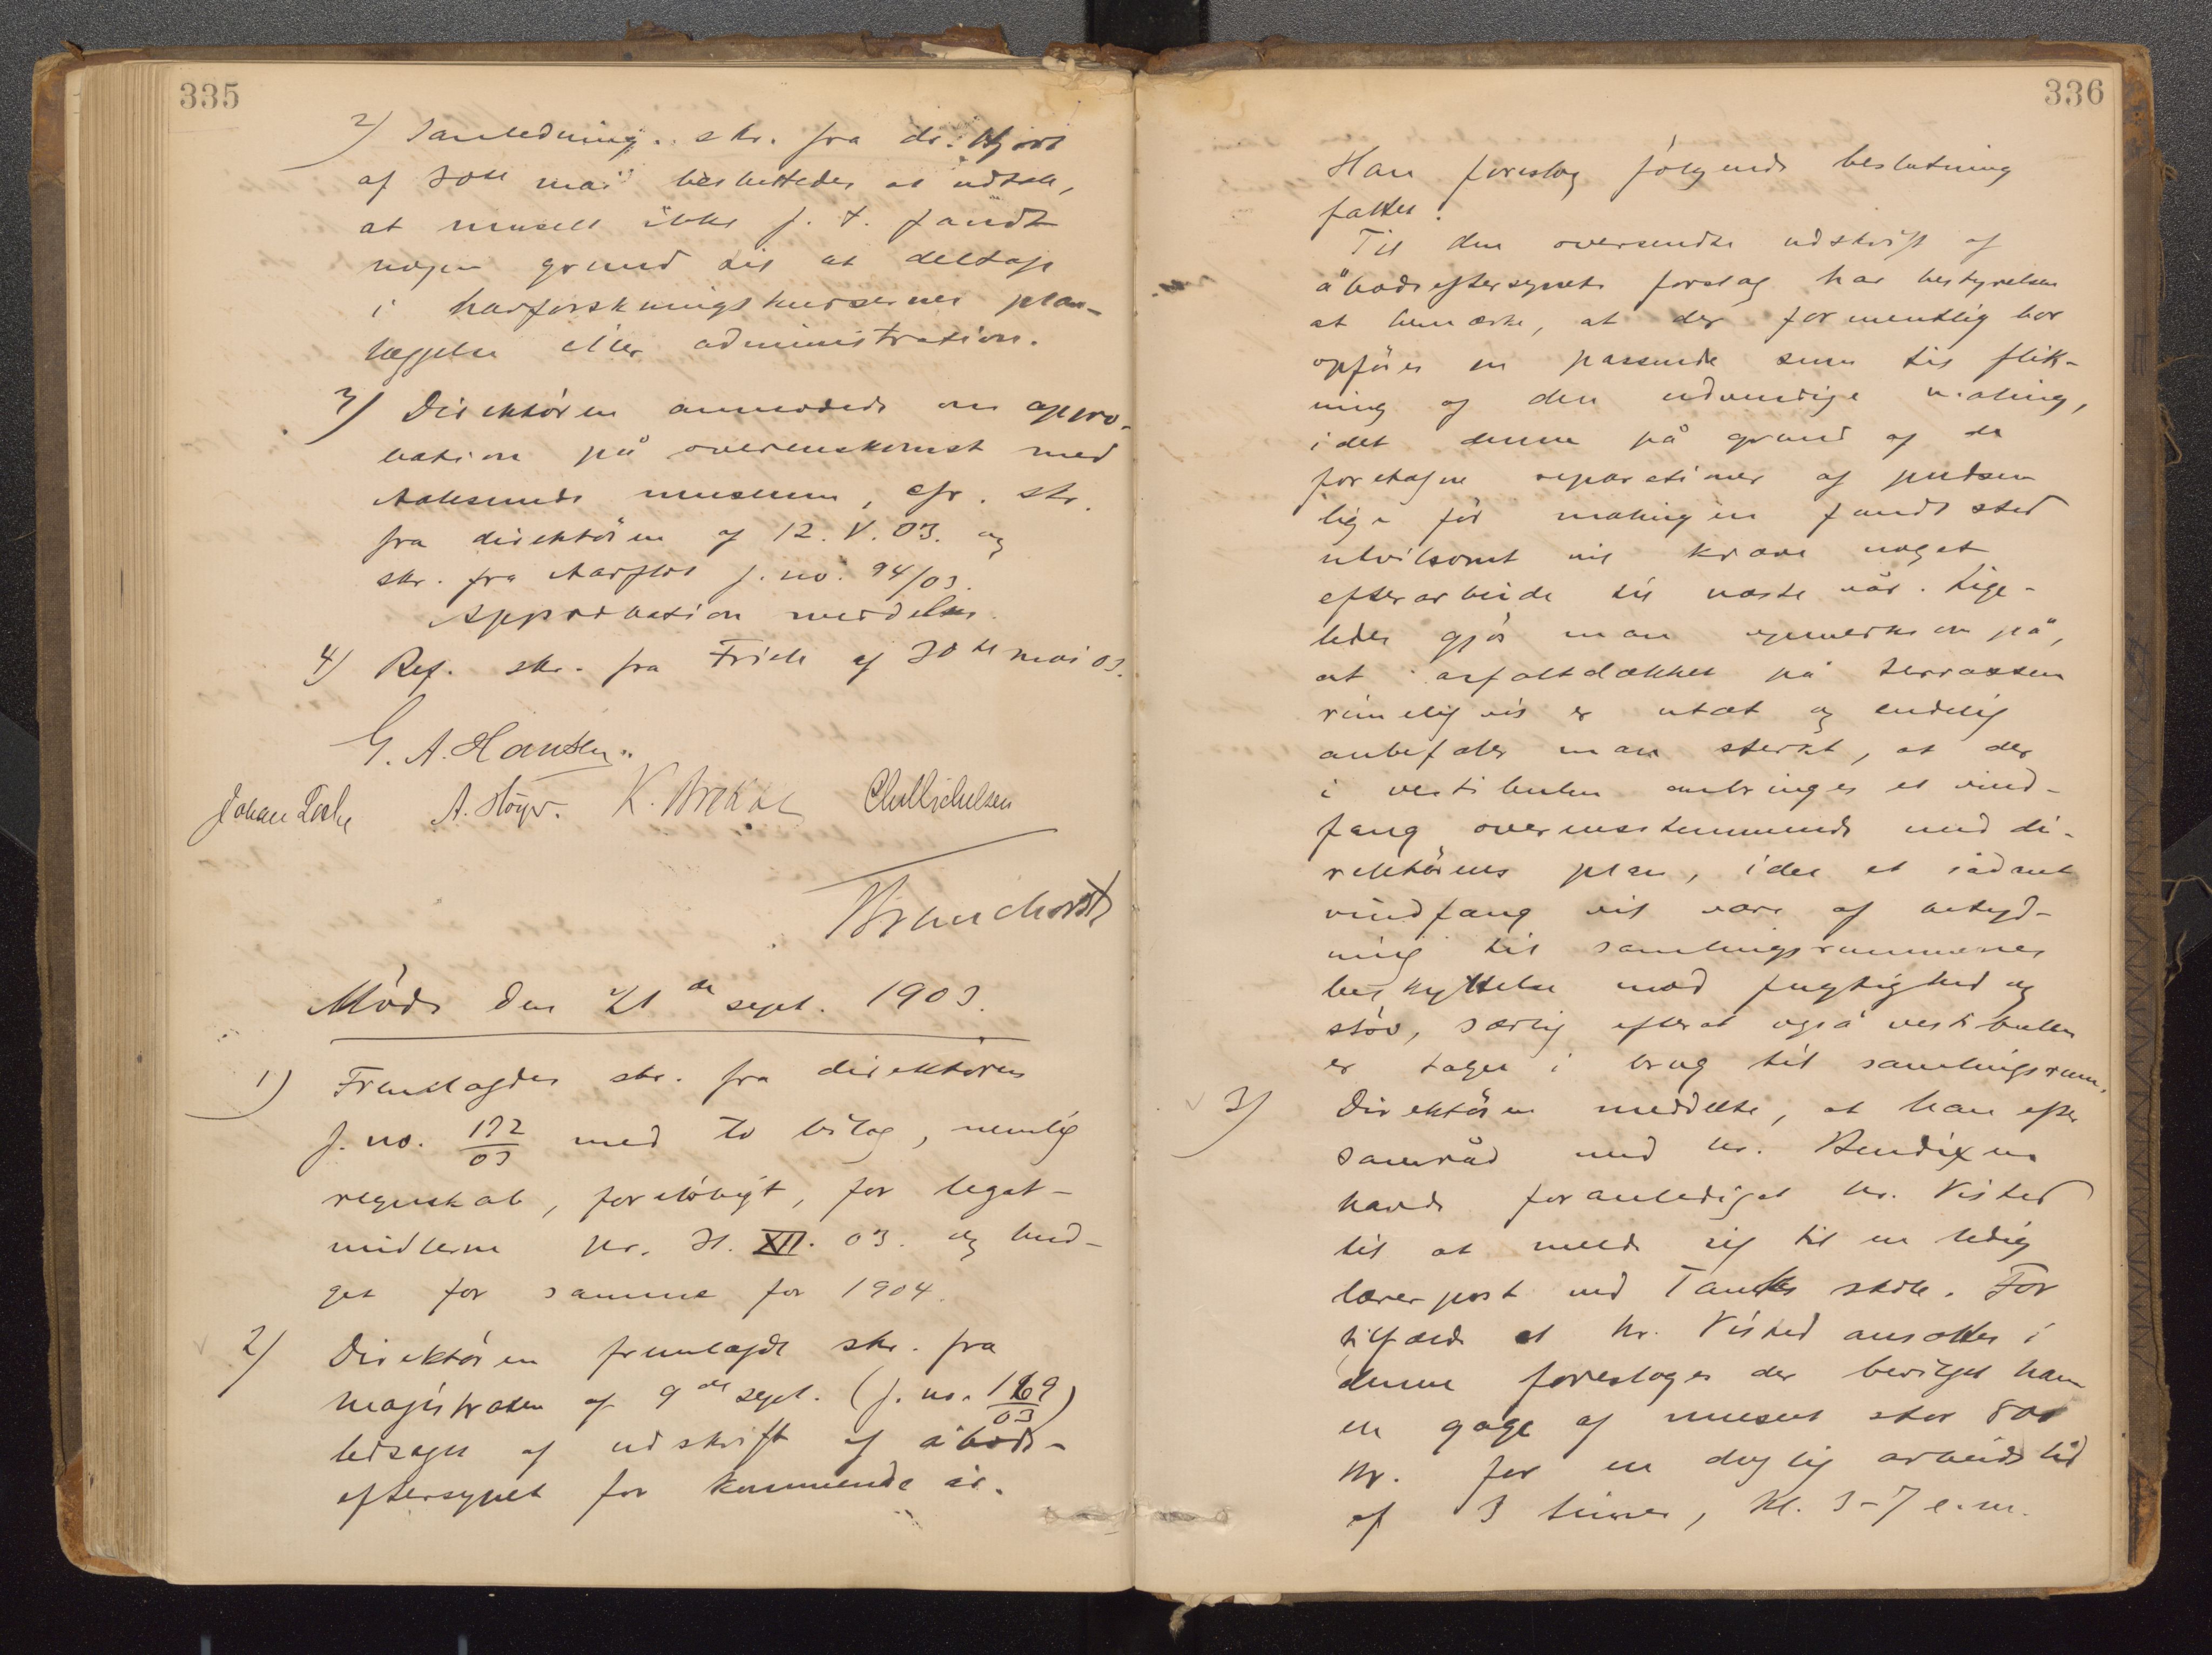 335
2) I anledning. skr. fra dr. Hjort
af 30te mai besluttedes at udtale,
at museet ikke f. t. fandt
nogen grund til at deltage
i havforskningskursernes plan-
læggelse eller administration.
3) Direktören anmodede om appro-
bation på overenskomst med
Aalesunds museum, cfr. skr.
fra direktören af 12. V. 03. og
skr. fra Aarflot j. no. 94/03.
Approbation meddeltes.
4) Ref. skr. fra Friele af 30te mai 03.
G. A. Hansen
Johan A. Höyer. K. Chr Michelsen
Brunchorst
Möde den 21de sept. 1903.
1) Fremlagdes skr. fra direktören
J. no. 172/03 med to bilag, nemlig
regnskab, foreløbigt, for legat-
midlerne pr. 31. XII. 03. og bud-
get for samme for 1904.
2) Direktören fremlagde skr. fra
magistraten af 9de sept. (j. no. 169/03)
ledsaget af udskrift af åbods-
eftersynet for kommende år.
336
Han foreslog fölgende beslutning
fattet.
Til den oversendte udskrift af
åbodseftersynets forslag har bestyrelsen
at bemærke, at der formentlig bör
opföres en passende sum til flik-
ning af den udvendige maling,
idet denne på grund af de
foretagne reparationer af pudsen
lige för malingen fandt sted
utvilsomt vil kræve noget
efterarbeide til næste vår. Lige-
ledes gjör man opmerksom på,
at asfaltdækket på terrassen
rimeligvis er utæt og endelig
anbefaler man sterkt, at der
i vestibulen anbringes et vind-
fang overensstemmende med di-
rektörens plan, idet et sådant
vindfang vil være af betyd-
ning til samlingsrummenes
beskyttelse mod fugtighed og
stöv, særlig efterat også vestibulen
er tagen i brug til samlingsrum.
3) Direktören meddelte, at han efter
samråd med hr. Bendixen
havde foranlediget hr. Visted
til at melde sig til en ledig
lærerpost ved Tanks skole. For
tilfælde at hr. Visted ansættes i
denne foresloges der bevilget ham
en gage af museet stor 800
kr. for en daglig arbeidstid
af 3 timer, kl. 3-7 e.m.